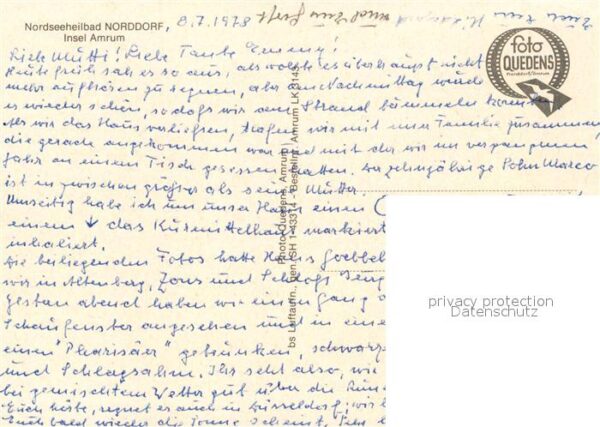 Nordseeheilbad NORDDORF,
Insel Amrum
8.7.1978
foto
QUEDENS
Norddorf/Amrum
Liebe Mutti! Liebe Tante Emmy!
Heute früh sah es so aus, als wollte es überhaupt nicht
mehr aufhören zu regnen, aber am Nachmittag wurde
es wieder schön, sodaß wir am Strand bummeln konnten.
Als wir das Haus verließen, trafen wir mit einer Familie zusammen,
die gerade angekommen war und mit der wir im vergangenen
Jahr an einem Tisch gesessen hatten. Der zehnjährige John Marco
ist inzwischen größer als seine Mutter.
Umseitig habe ich um unser Haus einen
einem ↓ das Kurmittelhaus markiert
inhaliert.
Die beiliegenden Fotos hatte Hans Goebbel
wir in Altenberg, Zons und Schloß
Gestern abend haben wir einen Gang
Schaufenster angesehen und in eine
einen "Pharisäer" getrunken, schwarz
und Schlagsahne. Ihr seht also, wie
bei gemischtem Wetter gut über die
Euch hörte, regnet es auch in Düsseldorf;
Euch bald wieder die Sonne scheint.
Photo Quedens, Amrum
bs Luftaufn., gen. SH - 43314 - Bestellnr. Amrum LK 314
privacy protection
Datenschutz